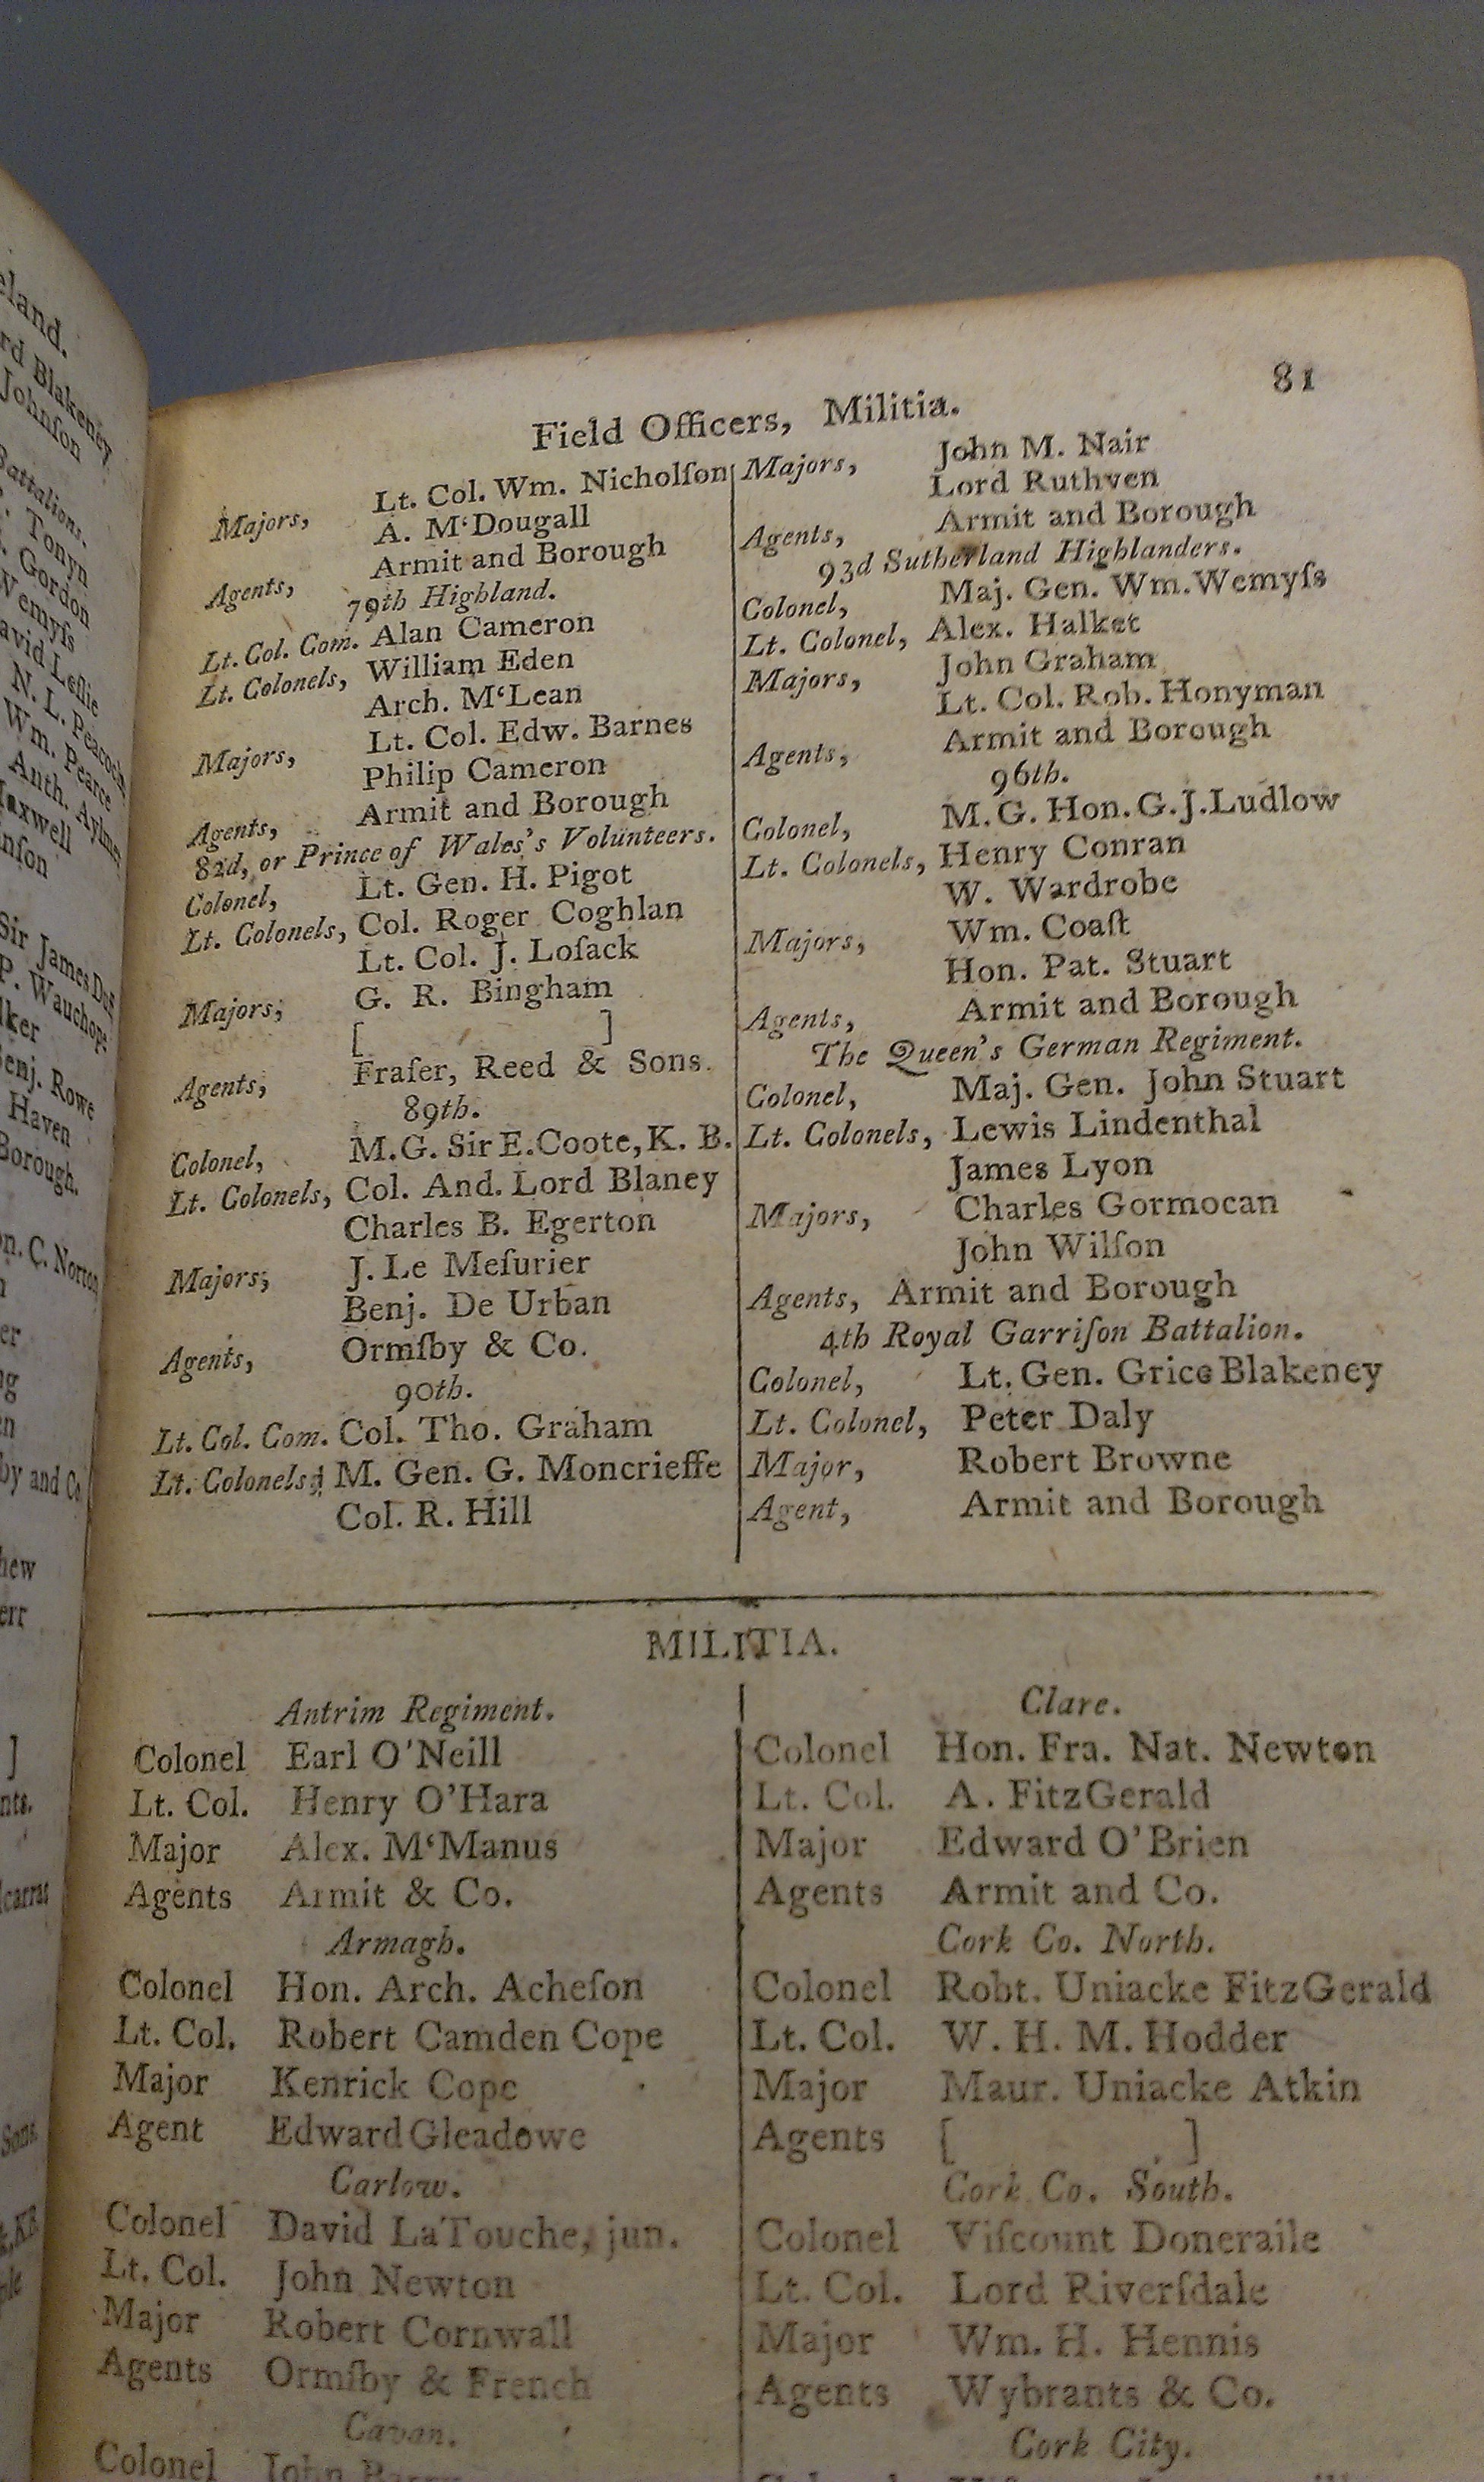 eland.
rd Blakeney
Johnſon
Battalions.
Tonyn
Gordon
Wemyſs
avid Leſlie
N. L. Peacock
Wm. Pearce
Anth. Aylmer
Maxwell
nſon
Sir James Duf
P. Wauchope
lker
Benj. Rowe
Haven
Borough.
on. C. Norton
er
ng
en
by and Co
hew
err
]
nts.
lcarras
Sons.
81
Field Officers, Militia.
Lt. Col. Wm. Nicholſon
Majors, A. M‘Dougall
Agents, Armit and Borough
79th Highland.
Lt. Col. Com. Alan Cameron
Lt. Colonels, William Eden
Arch. M‘Lean
Majors, Lt. Col. Edw. Barnes
Philip Cameron
Agents, Armit and Borough
82d, or Prince of Wales's Volunteers.
Colonel, Lt. Gen. H. Pigot
Lt. Colonels, Col. Roger Coghlan
Lt. Col. J. Loſack
Majors, G. R. Bingham
[ ]
Agents, Fraſer, Reed & Sons.
89th.
Colonel, M.G. Sir E. Coote, K. B.
Lt. Colonels, Col. And. Lord Blaney
Charles B. Egerton
Majors, J. Le Meſurier
Benj. De Urban
Agents, Ormſby & Co.
90th.
Lt. Col. Com. Col. Tho. Graham
Lt. Colonels, M. Gen. G. Moncrieffe
Col. R. Hill
Majors, John M. Nair
Lord Ruthven
Agents, Armit and Borough
93d Sutherland Highlanders.
Colonel, Maj. Gen. Wm. Wemyſs
Lt. Colonel, Alex. Halket
Majors, John Graham
Lt. Col. Rob. Honyman
Agents, Armit and Borough
96th.
Colonel, M.G. Hon. G. J. Ludlow
Lt. Colonels, Henry Conran
W. Wardrobe
Majors, Wm. Coaſt
Hon. Pat. Stuart
Agents, Armit and Borough
The Queen's German Regiment.
Colonel, Maj. Gen. John Stuart
Lt. Colonels, Lewis Lindenthal
James Lyon
Majors, Charles Gormocan
John Wilſon
Agents, Armit and Borough
4th Royal Garriſon Battalion.
Colonel, Lt. Gen. Grice Blakeney
Lt. Colonel, Peter Daly
Major, Robert Browne
Agent, Armit and Borough
MILITIA.
Antrim Regiment.
Colonel Earl O'Neill
Lt. Col. Henry O'Hara
Major Alex. M‘Manus
Agents Armit & Co.
Armagh.
Colonel Hon. Arch. Acheſon
Lt. Col. Robert Camden Cope
Major Kenrick Cope
Agent Edward Gleadowe
Carlow.
Colonel David LaTouche, jun.
Lt. Col. John Newton
Major Robert Cornwall
Agents Ormſby & French
Cavan.
Colonel John
Clare.
Colonel Hon. Fra. Nat. Newton
Lt. Col. A. FitzGerald
Major Edward O'Brien
Agents Armit and Co.
Cork Co. North.
Colonel Robt. Uniacke FitzGerald
Lt. Col. W. H. M. Hodder
Major Maur. Uniacke Atkin
Agents [ ]
Cork Co. South.
Colonel Viſcount Doneraile
Lt. Col. Lord Riverſdale
Major Wm. H. Hennis
Agents Wybrants & Co.
Cork City.